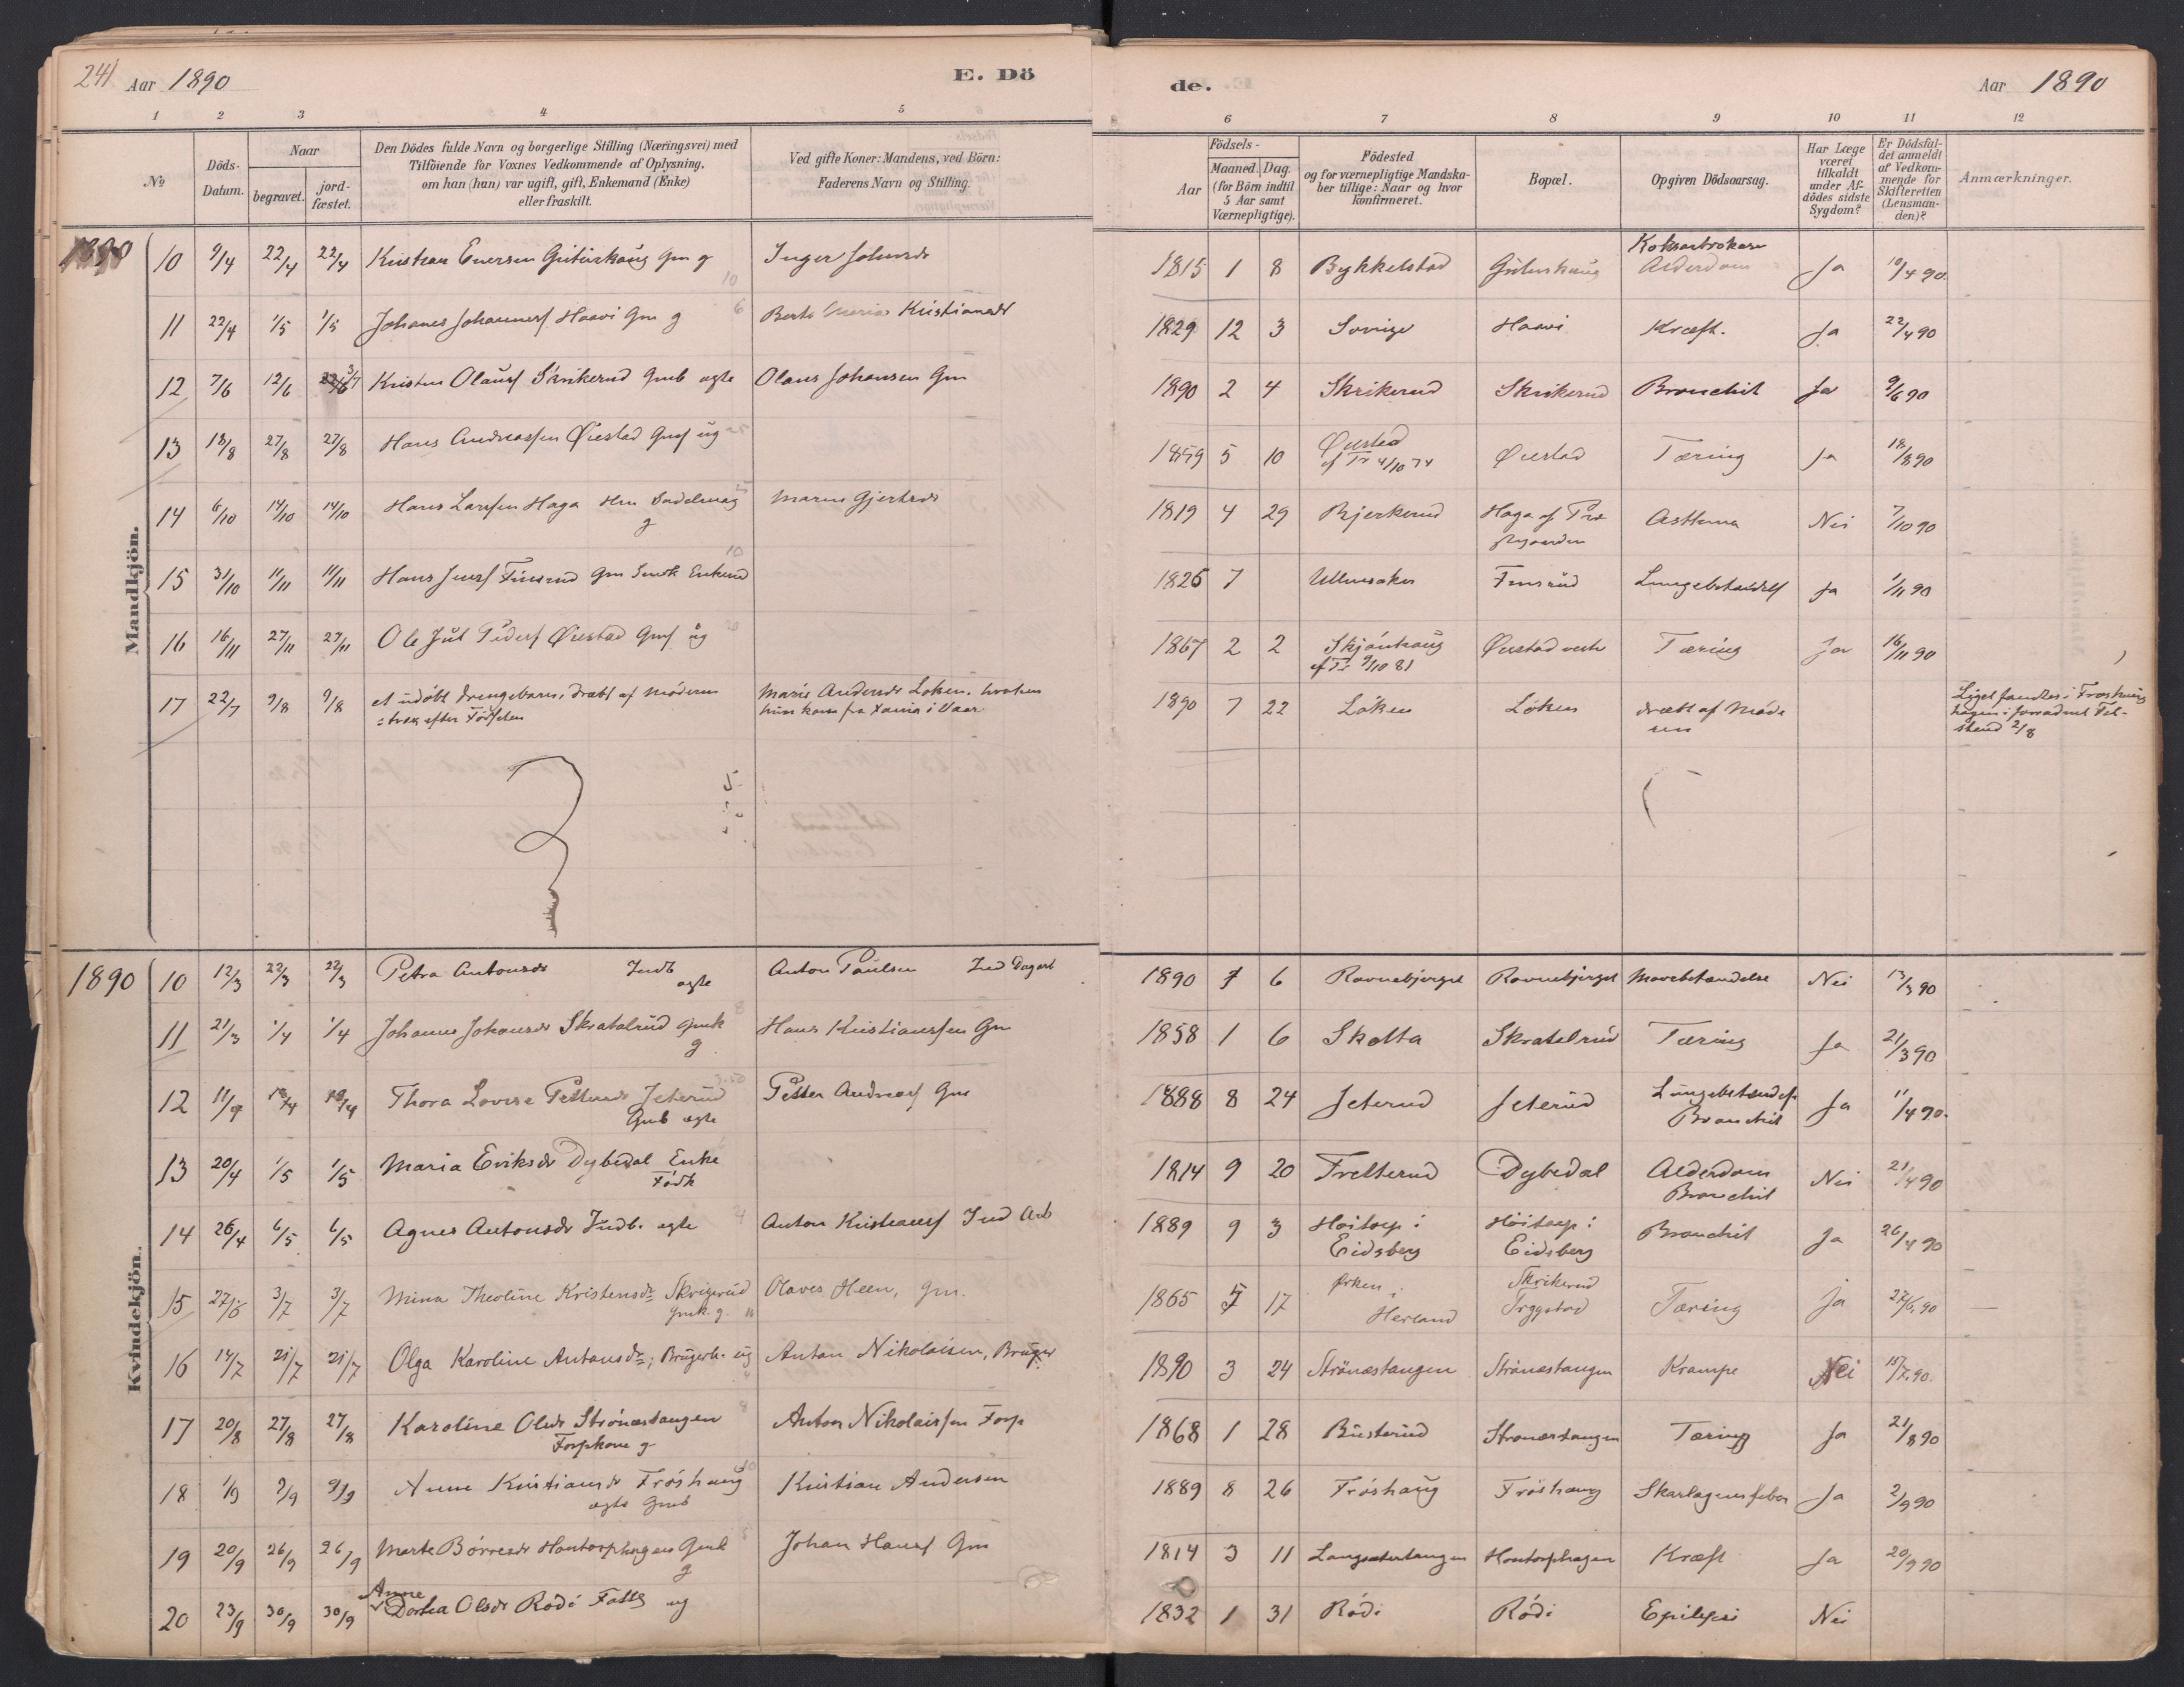 241 Aar 1890 E. Dö de. Aar 1890
1 2 3 4 5 6 7 8 9 10 11 12
No
Döds-Datum.
Naar
begravet.
jordfæstet.
Den Dödes fulde Navn og borgerlige Stilling (Næringsvei) med
Tilföiende for Voxnes Vedkommende af Oplysning,
om han (hun) var ugift, gift, Enkemand (Enke)
eller fraskilt.
Ved gifte Koner: Mandens, ved Börn:
Faderens Navn og Stilling.
Födsels-
Aar
Maaned. Dag.
(for Börn indtil
5 Aar samt
Værnepligtige).
Födested
og for værnepligtige Mandskaber tillige: Naar og hvor
konfirmeret.
Bopæl.
Opgiven Dödsaarsag.
Har Læge
været
tilkaldt
under Afdödes sidste
Sygdom?
Er Dödsfaldet anmeldt
af Vedkommende for
Skifteretten
(Lensmanden)?
Anmærkninger.
Mandkjön.
1890
10 9/4 22/4 22/4 Kristian Enersen gm g 10 Inger 1815 1 8 Bykkelstad Alderdom Ja 10/4 90.
11 22/4 1/5 1/5 Johanes Johannesf Haavi Gm g 6 Berte Maria Kristiansdr 1829 12 3 Sverige Haavi Kræft. Ja 22/4 90
12 7/6 12/6 3/7 Kristen Olausf Skrikerud Gmb ægte Olaus Johansen Gm 1890 2 4 Skrikerud Skrikerud Bronchit Ja 9/6 90
13 18/8 27/8 27/8 Hans Andreassen Øiestad Gmf ug 1859 5 10 Øiestad
af Tr 4/10 74 Øiestad Tæring Ja 18/8 90
14 6/10 14/10 14/10 Hans Larssen Haga Hm Sadelmag
g Maren Gjertsdr 1819 4 29 Bjerkerud Haga af
Astthma Nei 7/10 90
15 31/10 11/11 11/11 Hans Jensf Finsrud Gm Enkemd 10 1826 7 Ullensaker Finsrud Lungebetændels Ja 1/11 90
16 16/11 27/11 27/11 Ole Jul Pedersf Øiestad Gmf ug 20 1867 2 2 Skjönhaug
af Tr 9/10 81 Øiestad vestr Tæring Ja 16/11 90
17 22/7 9/8 9/8 et udöbt Drengebarn, dræbt af Moderen
strax efter Födselen Marie Andersdr Löken. hvorhen
hun kom fra Xania i Vaar 1890 7 22 Löken Löken dræbt af Mode
ren Liget fandtes i Fröshaug
hagen i forraadnet Tilstand 2/8
5
Kvindekjön.
1890
10 12/3 22/3 22/3 Petra Antonsdr Indb
ægte Anton Paulsen Ind Dagarb 1890 7 6 Ravnebjerget Ravnebjerget Mavebetændelse Nei 13/3 90
11 21/3 1/4 1/4 Johanne Johansdr Skratalrud Gmk
g. 8 Hans Kristiansen Gm 1858 1 6 Skotta Skratelrud Tæring Ja 21/3 90
12 11/4 18/4 18/4 Thora Lovise Pettersdr Jeterud
Gmb ægte Petter Andreasf Gm 1888 8 24 Jeterud Jeterud Lungebetændels
Bronchit Ja 11/4 90.
13 20/4 1/5 1/5 Maria Eriksdr Dybedal Enke
Födk 1814 9 20 Fretterud Dybedal Alderdom
Bronchit Nei 21/4 90
14 26/4 6/5 6/5 Agnes Antonsdr Indb. ægte 4 Anton Kristiansf Ind Arb 1889 9 3 Höitorp i
Eidsberg Höitorp i
Eidsberg Bronchit Ja 26/4 90
15 27/6 3/7 3/7 Mina Theoline Kristensdr Skrigerud
Gmk. g. Olaves Heen, Gm. 1865 5 17 Ørken i
Herland Skrikerud
Trygstad Tæring Ja 27/6. 90
16 14/7 21/7 21/7 Olga Karoline Antonsdr; Brugerb. ug Anton Nikolaisen, Bruger 1890 3 24 Strönæstangen Strönæstangen Krampe Nei 15/7. 90.
17 20/8 27/8 27/8 Karoline Olsdr Strönæstangen
Forpkone g 8 Anton Nikolaissen Forp 1868 1 28 Busterud Stronæstangen Tæring Ja 21/8 90
18 1/9 9/9 9/9 Anne Kristiansdr Fröshaug
ægte Gmb 10 Kristian Andersen 1889 8 26 Fröshaug Fröshaug Skarlagensfeber Ja 2/9 90
19 20/9 26/9 26/9 Marte Börresdr Hontorphagen Gmk
g Johan Hansf Gm 1814 3 11 Langsætertangen Hontorphagen Kræft Ja 20/9 90
20 23/9 30/9 30/9 Anne
Dortea Olsdr Rödi Fattg ug 1832 1 31 Rödi Rödi Epilepsi Nei